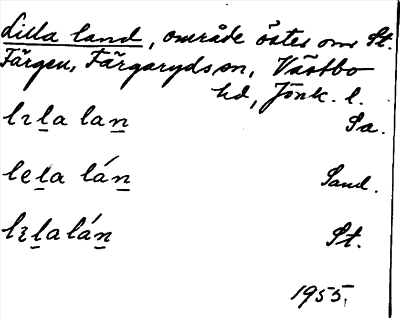 Lilla land, område öster om St.
Färgen, Färgaryds sn, Västbo
hd, Jönk. l.
lɪl̲a lan̲ Sa.
lel̲a lán̲ Sand.
lɛl̲a lán̲ St.
1955.